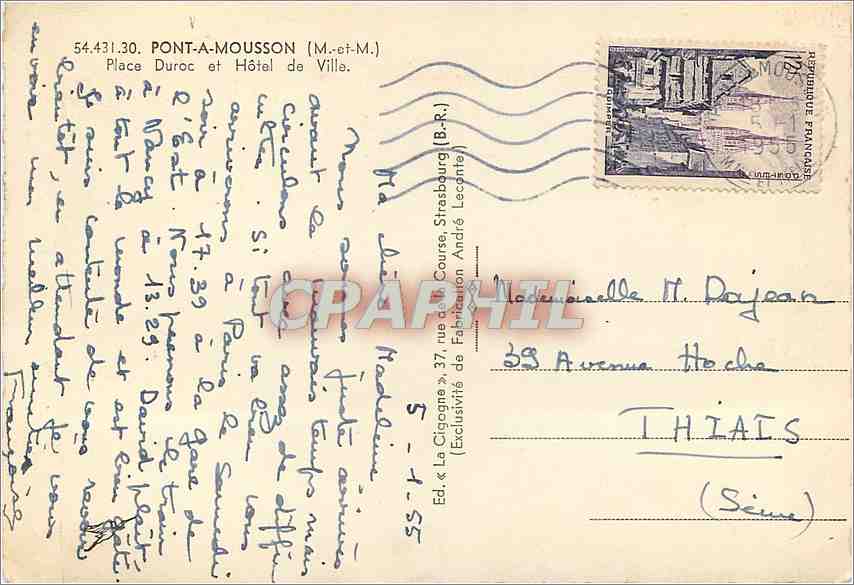 54.431.30. PONT-A-MOUSSON (M.-et-M.)
Place Duroc et Hôtel de Ville.
5-1-55
Ma chère Madeleine
Nous sommes juste arrivées
avant le mauvais temps mais
circulons avec assez de diffi-
cultés. Si tout va bien nous
arriverons à Paris le Samedi
soir à 17.39 à la gare de
l'Est. Nous prenons le train
à Nancy à 13.29. David plaît
à tout le monde et est bien gâté.
Je suis contente de vous revoir
bientôt, en attendant je vous
envoie mon meilleur
Françoise
Ed. « La Cigogne », 37, rue de la Course, Strasbourg (B.-R.)
(Exclusivité de Fabrication André Leconte)
REPUBLIQUE FRANÇAISE
QUIMPER
12F
Mademoiselle M. Dajean
39 Avenue Hoche
THIAIS
(Seine)
CPAPHIL